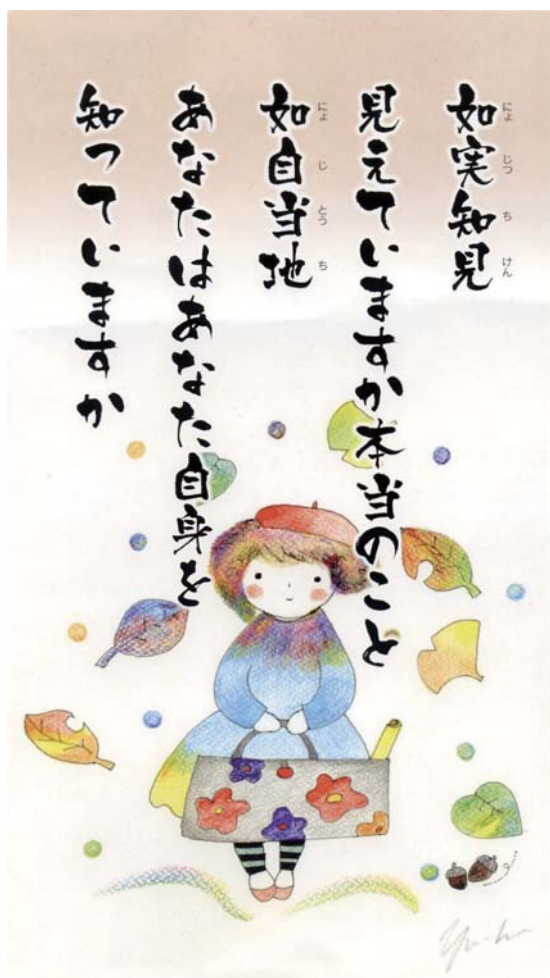 如実知見
にょ じつ ち けん
見えていますか本当のこと
如自当地
にょ じ とう ち
あなたはあなた自身を
知っていますか